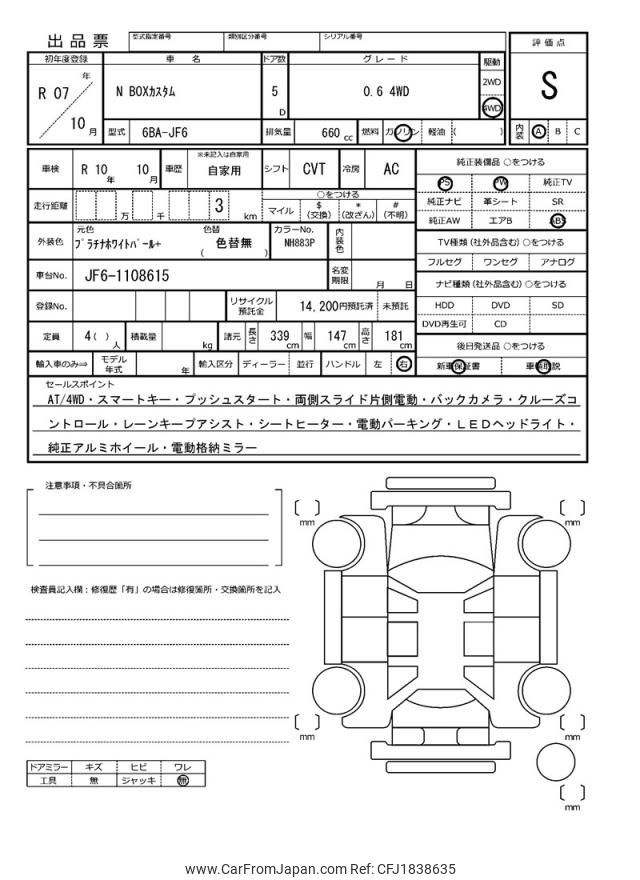 出品票
型式指定番号 類別区分番号 シリアル番号
初年度登録 車名 ドア数 グレード 駆動 評価点
R 07 年 10 月
N BOXカスタム 5 D 0.6 4WD 2WD 4WD
S
型式 6BA-JF6 排気量 660 cc 燃料 ガソリン 軽油 ( )
内装 A B C
車検 R 10 年 10 月 車歴 ※未記入は自家用 自家用 シフト CVT 冷房 AC
純正装備品 ○をつける
PS PW 純正TV
純正ナビ 革シート SR
純正AW エアB ABS
走行距離 万 千 3 km
○をつける
マイル $(交換) *(改ざん) #(不明)
TV種類(社外品含む)○をつける
フルセグ ワンセグ アナログ
外装色 元色 プラチナホワイトパール+ 色替 ( 色替無 ) カラーNo. NH883P 内装色
車台No. JF6-1108615 名変期限 月 日
ナビ種類(社外品含む)○をつける
HDD DVD SD
DVD再生可 CD
登録No. リサイクル預託金 14,200円預託済 未預託
定員 4( )人 積載量 kg 諸元 長さ 339 cm 幅 147 cm 高さ 181 cm
後日発送品 ○をつける
新車保証書 車輌取説
輸入車のみ⇒ モデル年式 年 輸入区分 ディーラー 並行 ハンドル 左 右
セールスポイント
AT/4WD・スマートキー・プッシュスタート・両側スライド片側電動・バックカメラ・クルーズコ
ントロール・レーンキープアシスト・シートヒーター・電動パーキング・LEDヘッドライト・
純正アルミホイール・電動格納ミラー
注意事項・不具合箇所
検査員記入欄:修復歴「有」の場合は修復箇所・交換箇所を記入
[ ] mm
[ ] mm
[ ] mm
[ ] mm
[ ] mm
ドアミラー キズ ヒビ ワレ
工具 無 ジャッキ 無
www.CarFromJapan.com Ref: CFJ1838635